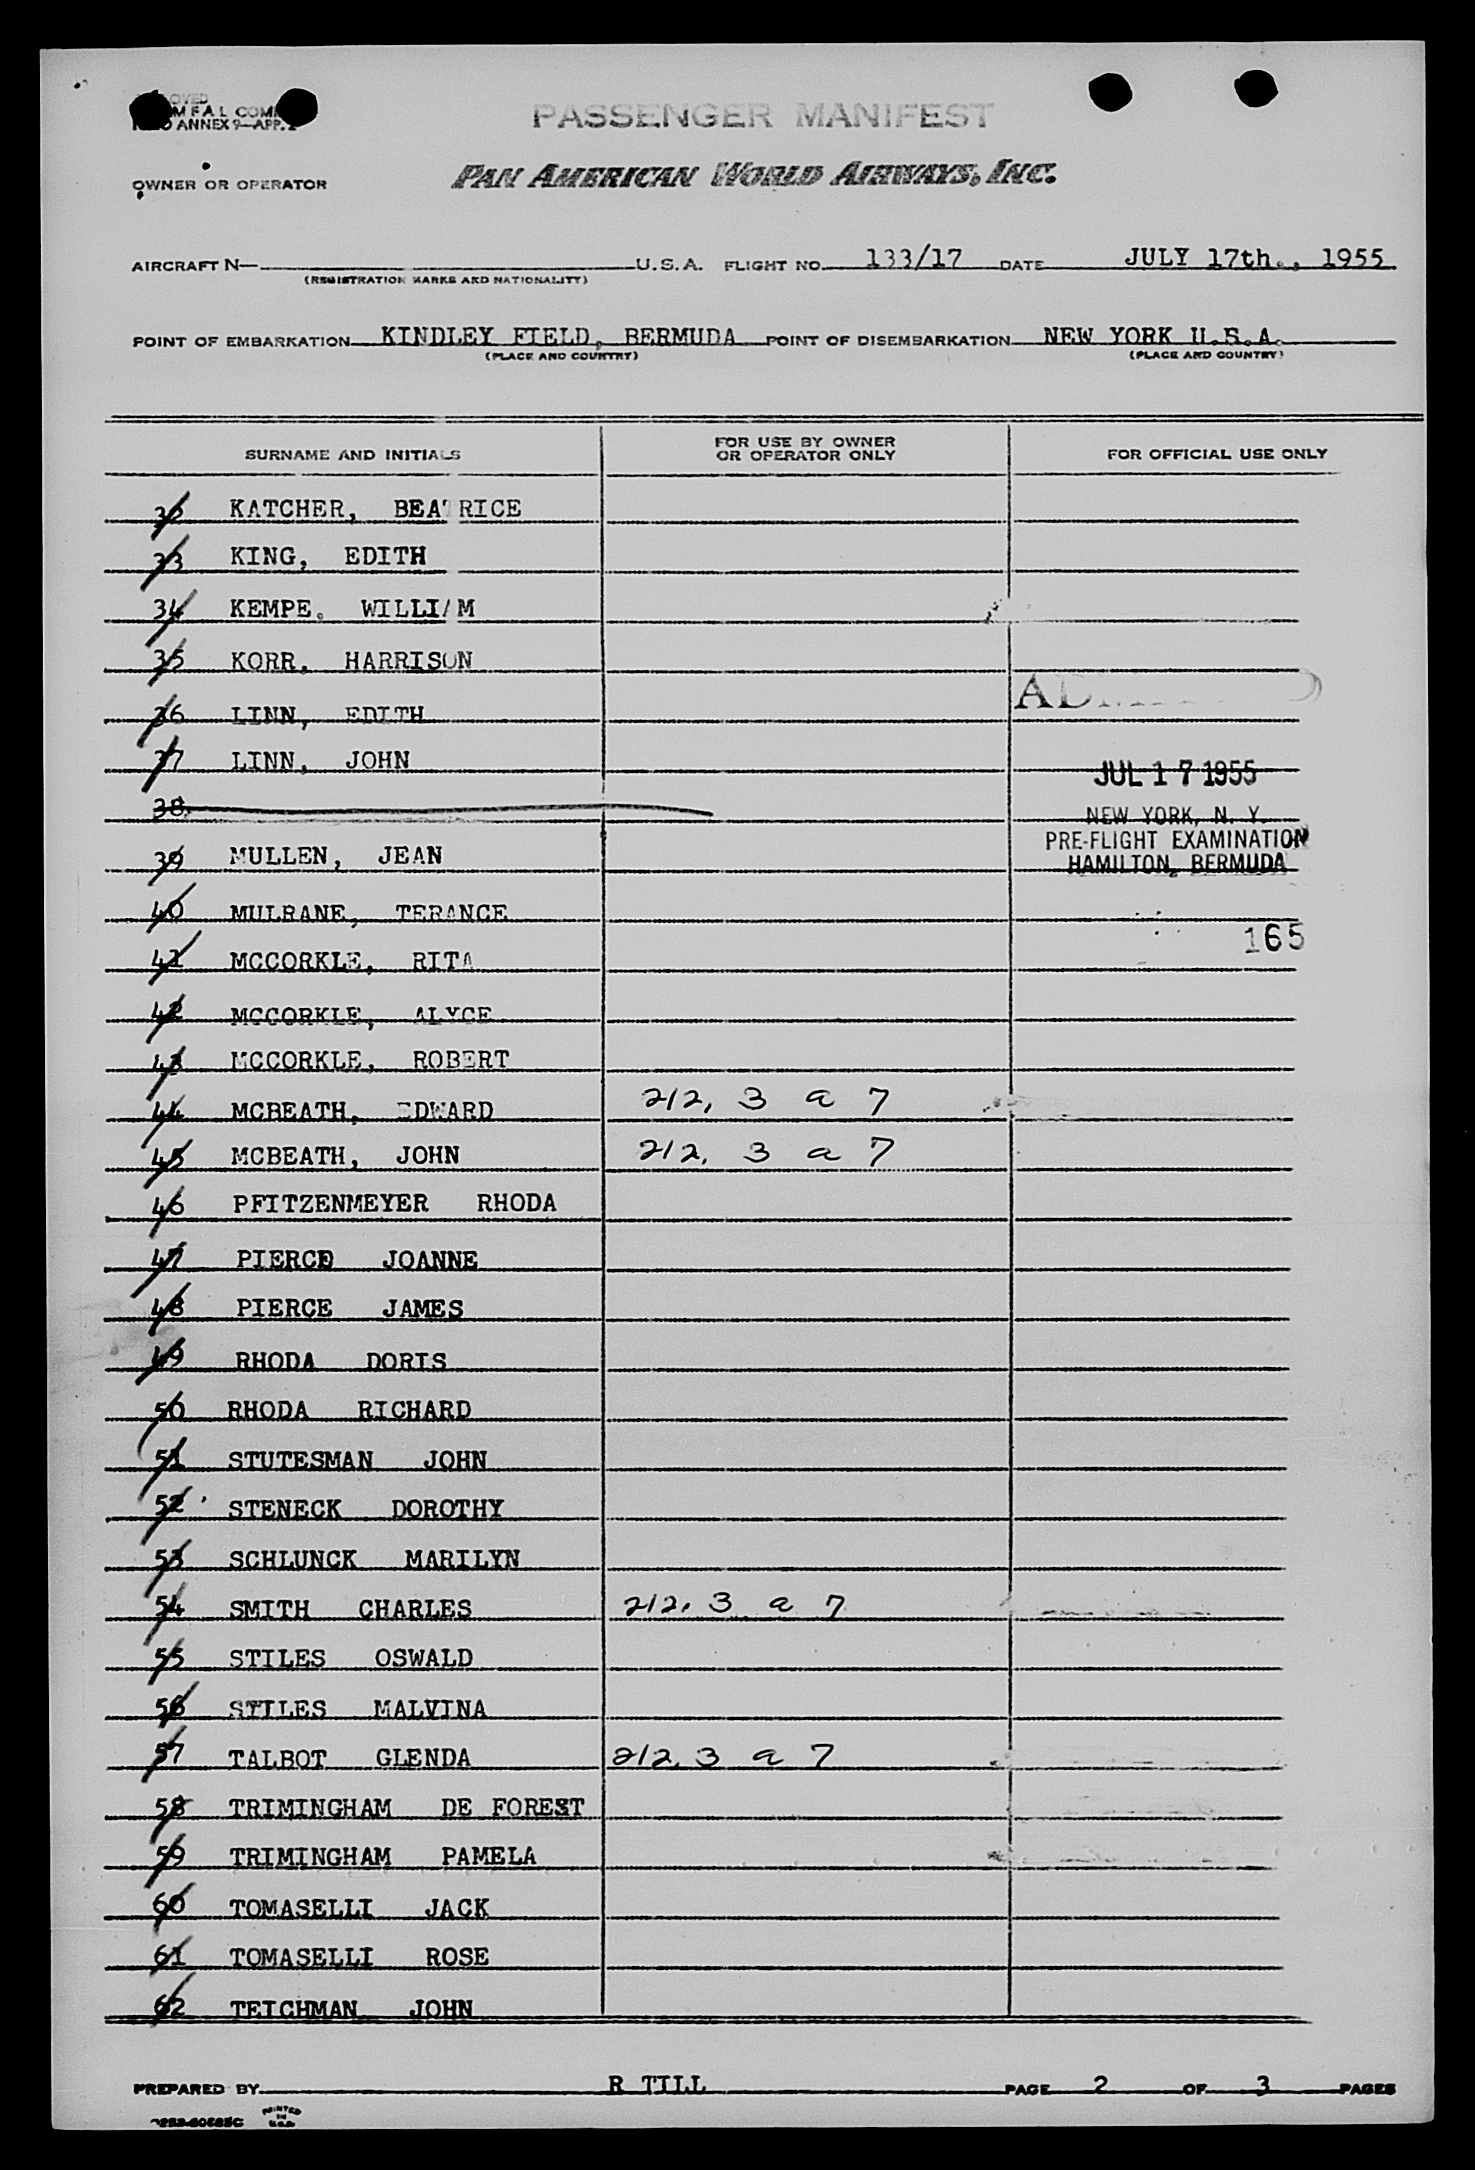 PASSENGER MANIFEST
ANNEX 9—APP.
OWNER OR OPERATOR PAN AMERICAN WORLD AIRWAYS, INC.
AIRCRAFT N— U.S.A. FLIGHT NO. 133/17 DATE JULY 17th., 1955
(REGISTRATION MARKS AND NATIONALITY)
POINT OF EMBARKATION KINDLEY FIELD, BERMUDA POINT OF DISEMBARKATION NEW YORK U.S.A.
(PLACE AND COUNTRY) (PLACE AND COUNTRY)
SURNAME AND INITIALS FOR USE BY OWNER OR OPERATOR ONLY FOR OFFICIAL USE ONLY
32 KATCHER, BEATRICE
33 KING, EDITH
34 KEMPE. WILLIAM
35 KORR. HARRISON
36 LINN, EDITH
37 LINN, JOHN
JUL 17 1955
38
NEW YORK, N. Y.
PRE-FLIGHT EXAMINATION
39 MULLEN, JEAN HAMILTON, BERMUDA
40 MULRANE, TERANCE
165
41 MCCORKLE, RITA
42 MCCORKLE, ALYCE
43 MCCORKLE, ROBERT
44 MCBEATH, EDWARD 212, 3 a 7
45 MCBEATH, JOHN 212, 3 a 7
46 PFITZENMEYER RHODA
47 PIERCE JOANNE
48 PIERCE JAMES
49 RHODA DORIS
50 RHODA RICHARD
51 STUTESMAN JOHN
52 STENECK DOROTHY
53 SCHLUNCK MARILYN
54 SMITH CHARLES 212, 3 a 7
55 STILES OSWALD
56 STILES MALVINA
57 TALBOT GLENDA 212, 3 a 7
58 TRIMINGHAM DE FOREST
59 TRIMINGHAM PAMELA
60 TOMASELLI JACK
61 TOMASELLI ROSE
62 TEICHMAN JOHN
PREPARED BY R TILL PAGE 2 OF 3 PAGES
PRINTED IN U.S.A.